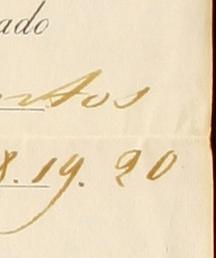 ado
ntos
8. 19. 20